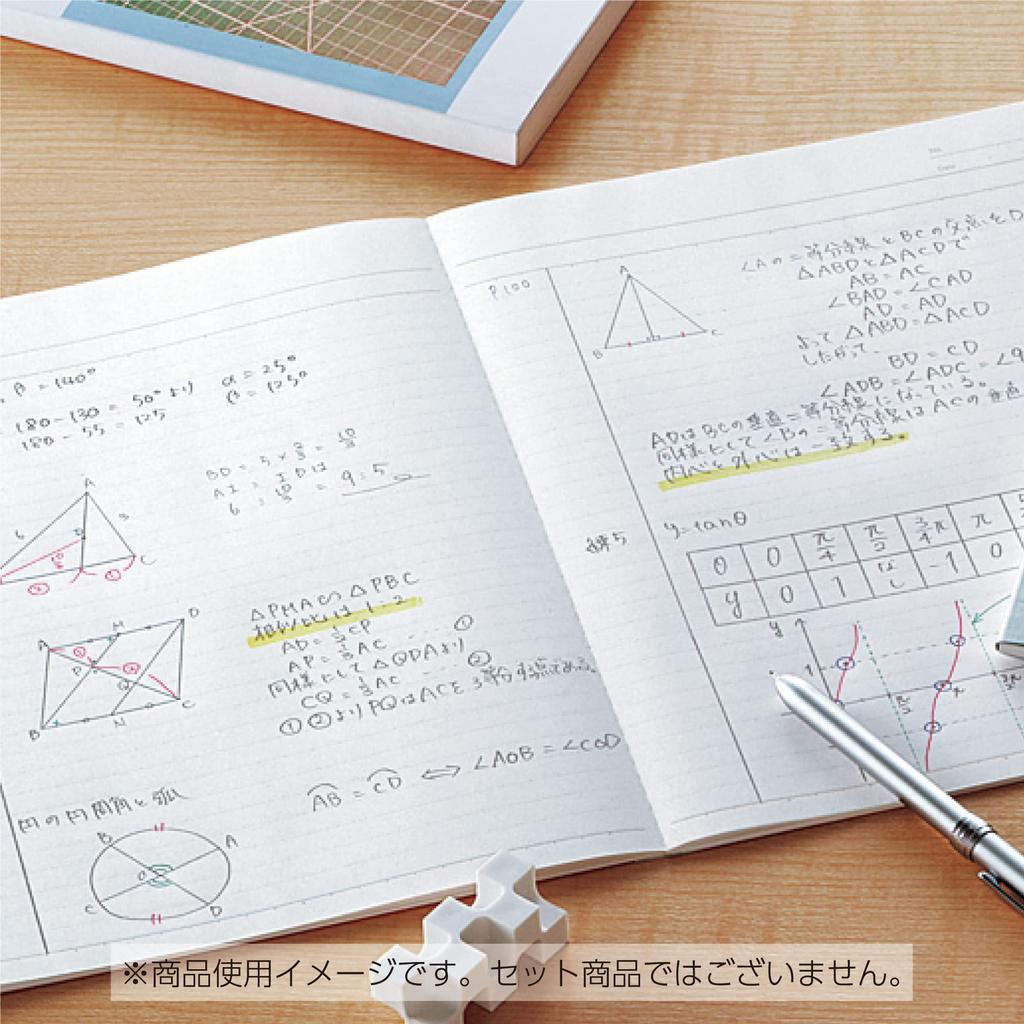 β = 140°
180-130 = 50°より
180-55 = 125
α = 25°
β = 125°
BD = 5 × 2/3 = 10/3
AI : IDは
6 : 10/3 = 9:5
A
6
3
C
②
①
A
M
D
P
Q
B
N
C
△PMA∽△PBC
相似比は 1:2
AD = 1/2CP
AP = 1/3AC … ①
同様にして△QDAより
CQ = 1/3AC … ②
①②よりPQはACを3等分する点である。
円の円周角と弧
B
A
O
C
D
AB = CD ⇔ ∠AOB = ∠COD
No.
Date
P100
A
B
C
∠Aの二等分線とBCの交点をD
△ABDと△ACDで
AB = AC
∠BAD = ∠CAD
AD = AD
よって △ABD = △ACD
したがって、
BD = CD
∠ADB = ∠ADC = ∠9
ADはBCの垂直二等分線になっている。
同様にして∠Bの二等分線はACの垂直
内心と外心は一致する。
5
y = tanθ
θ 0 π/4 π/2 3/4π π
y 0 1 なし -1 0
y
1
π/2
π
3π/2
※商品使用イメージです。セット商品ではございません。